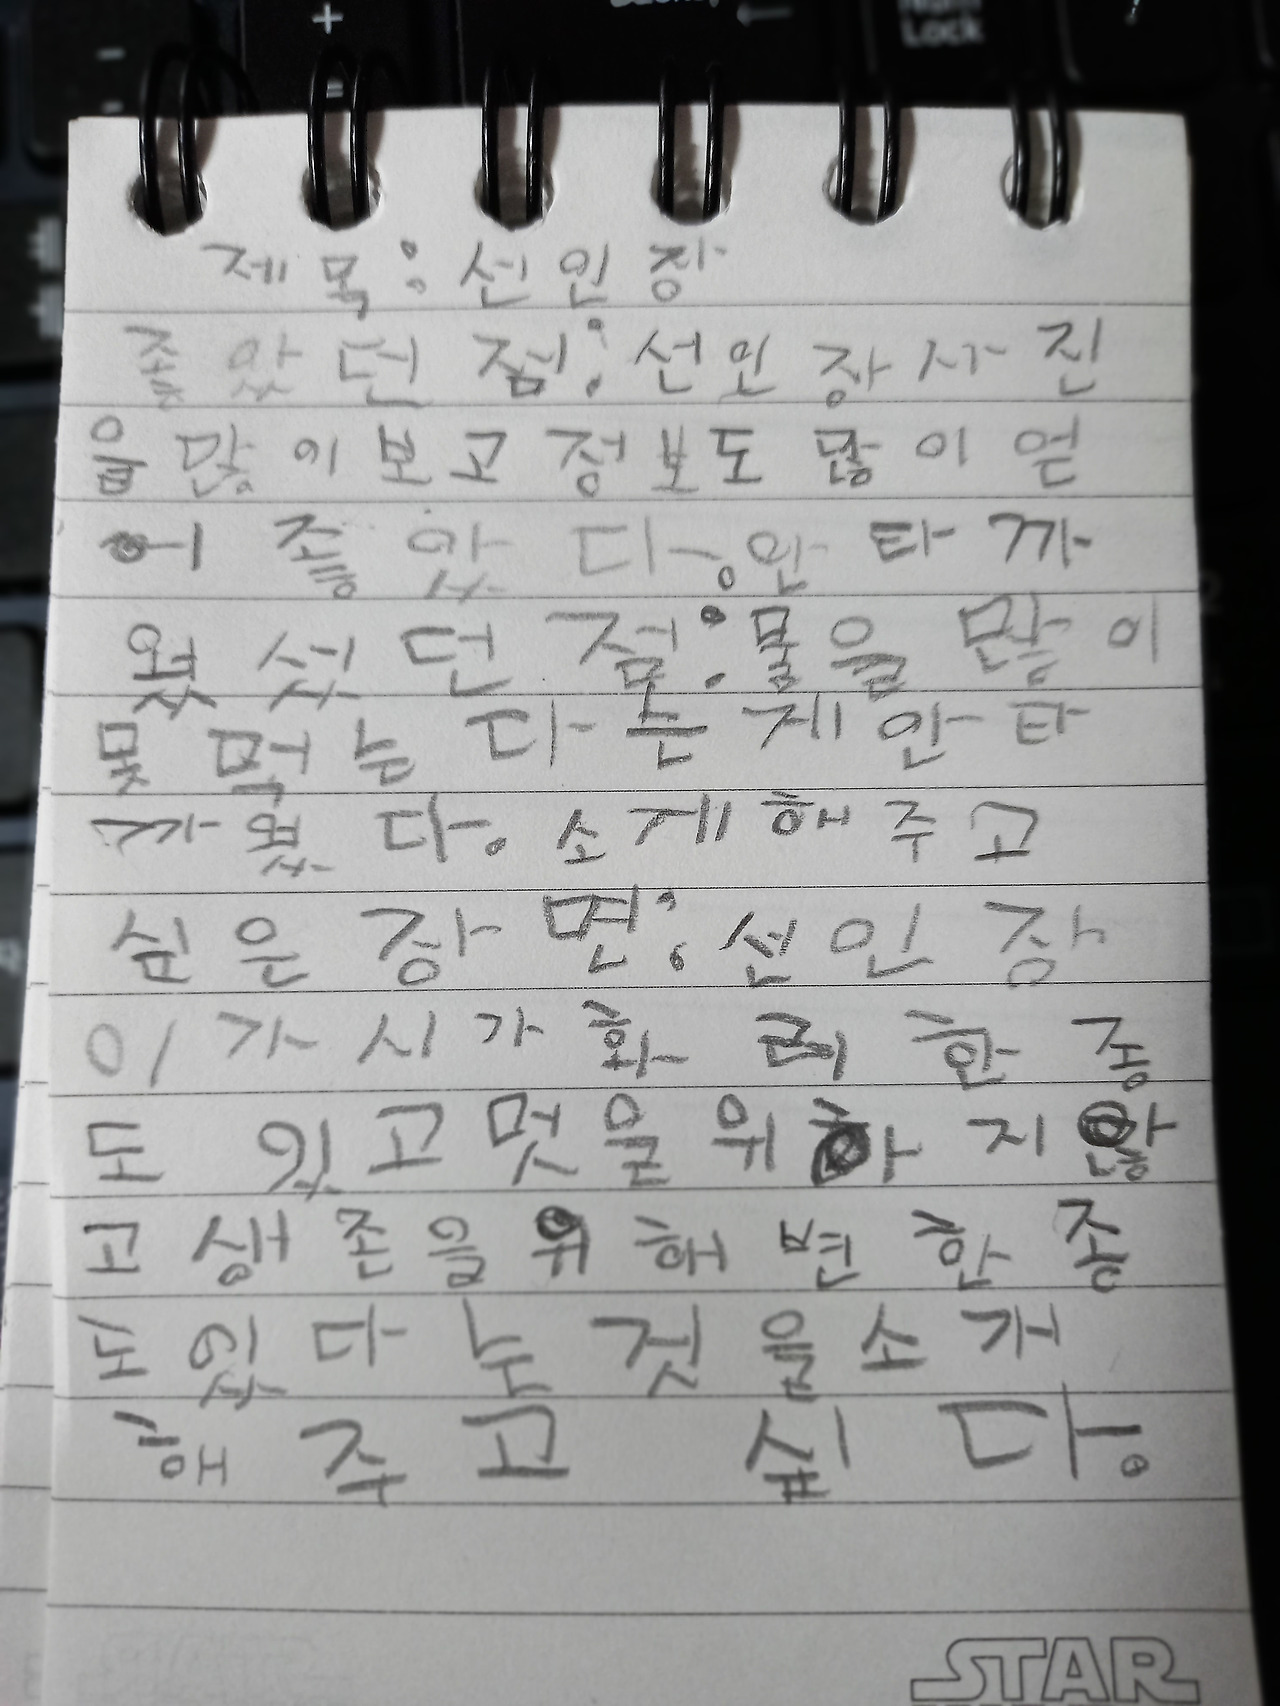 제목:선인장
좋았던 점:선인장사진
을많이보고정보도많이얻
어 좋았다.안타까
웠섰던 점:물을많이
못먹는다는게안타
까웠다.소게해주고
싶은장면:선인장
이가시가화려한종
도 있고멋을위하지않
고생존을위해변한종
도있다는것을소개
해주고 싶다.
STAR